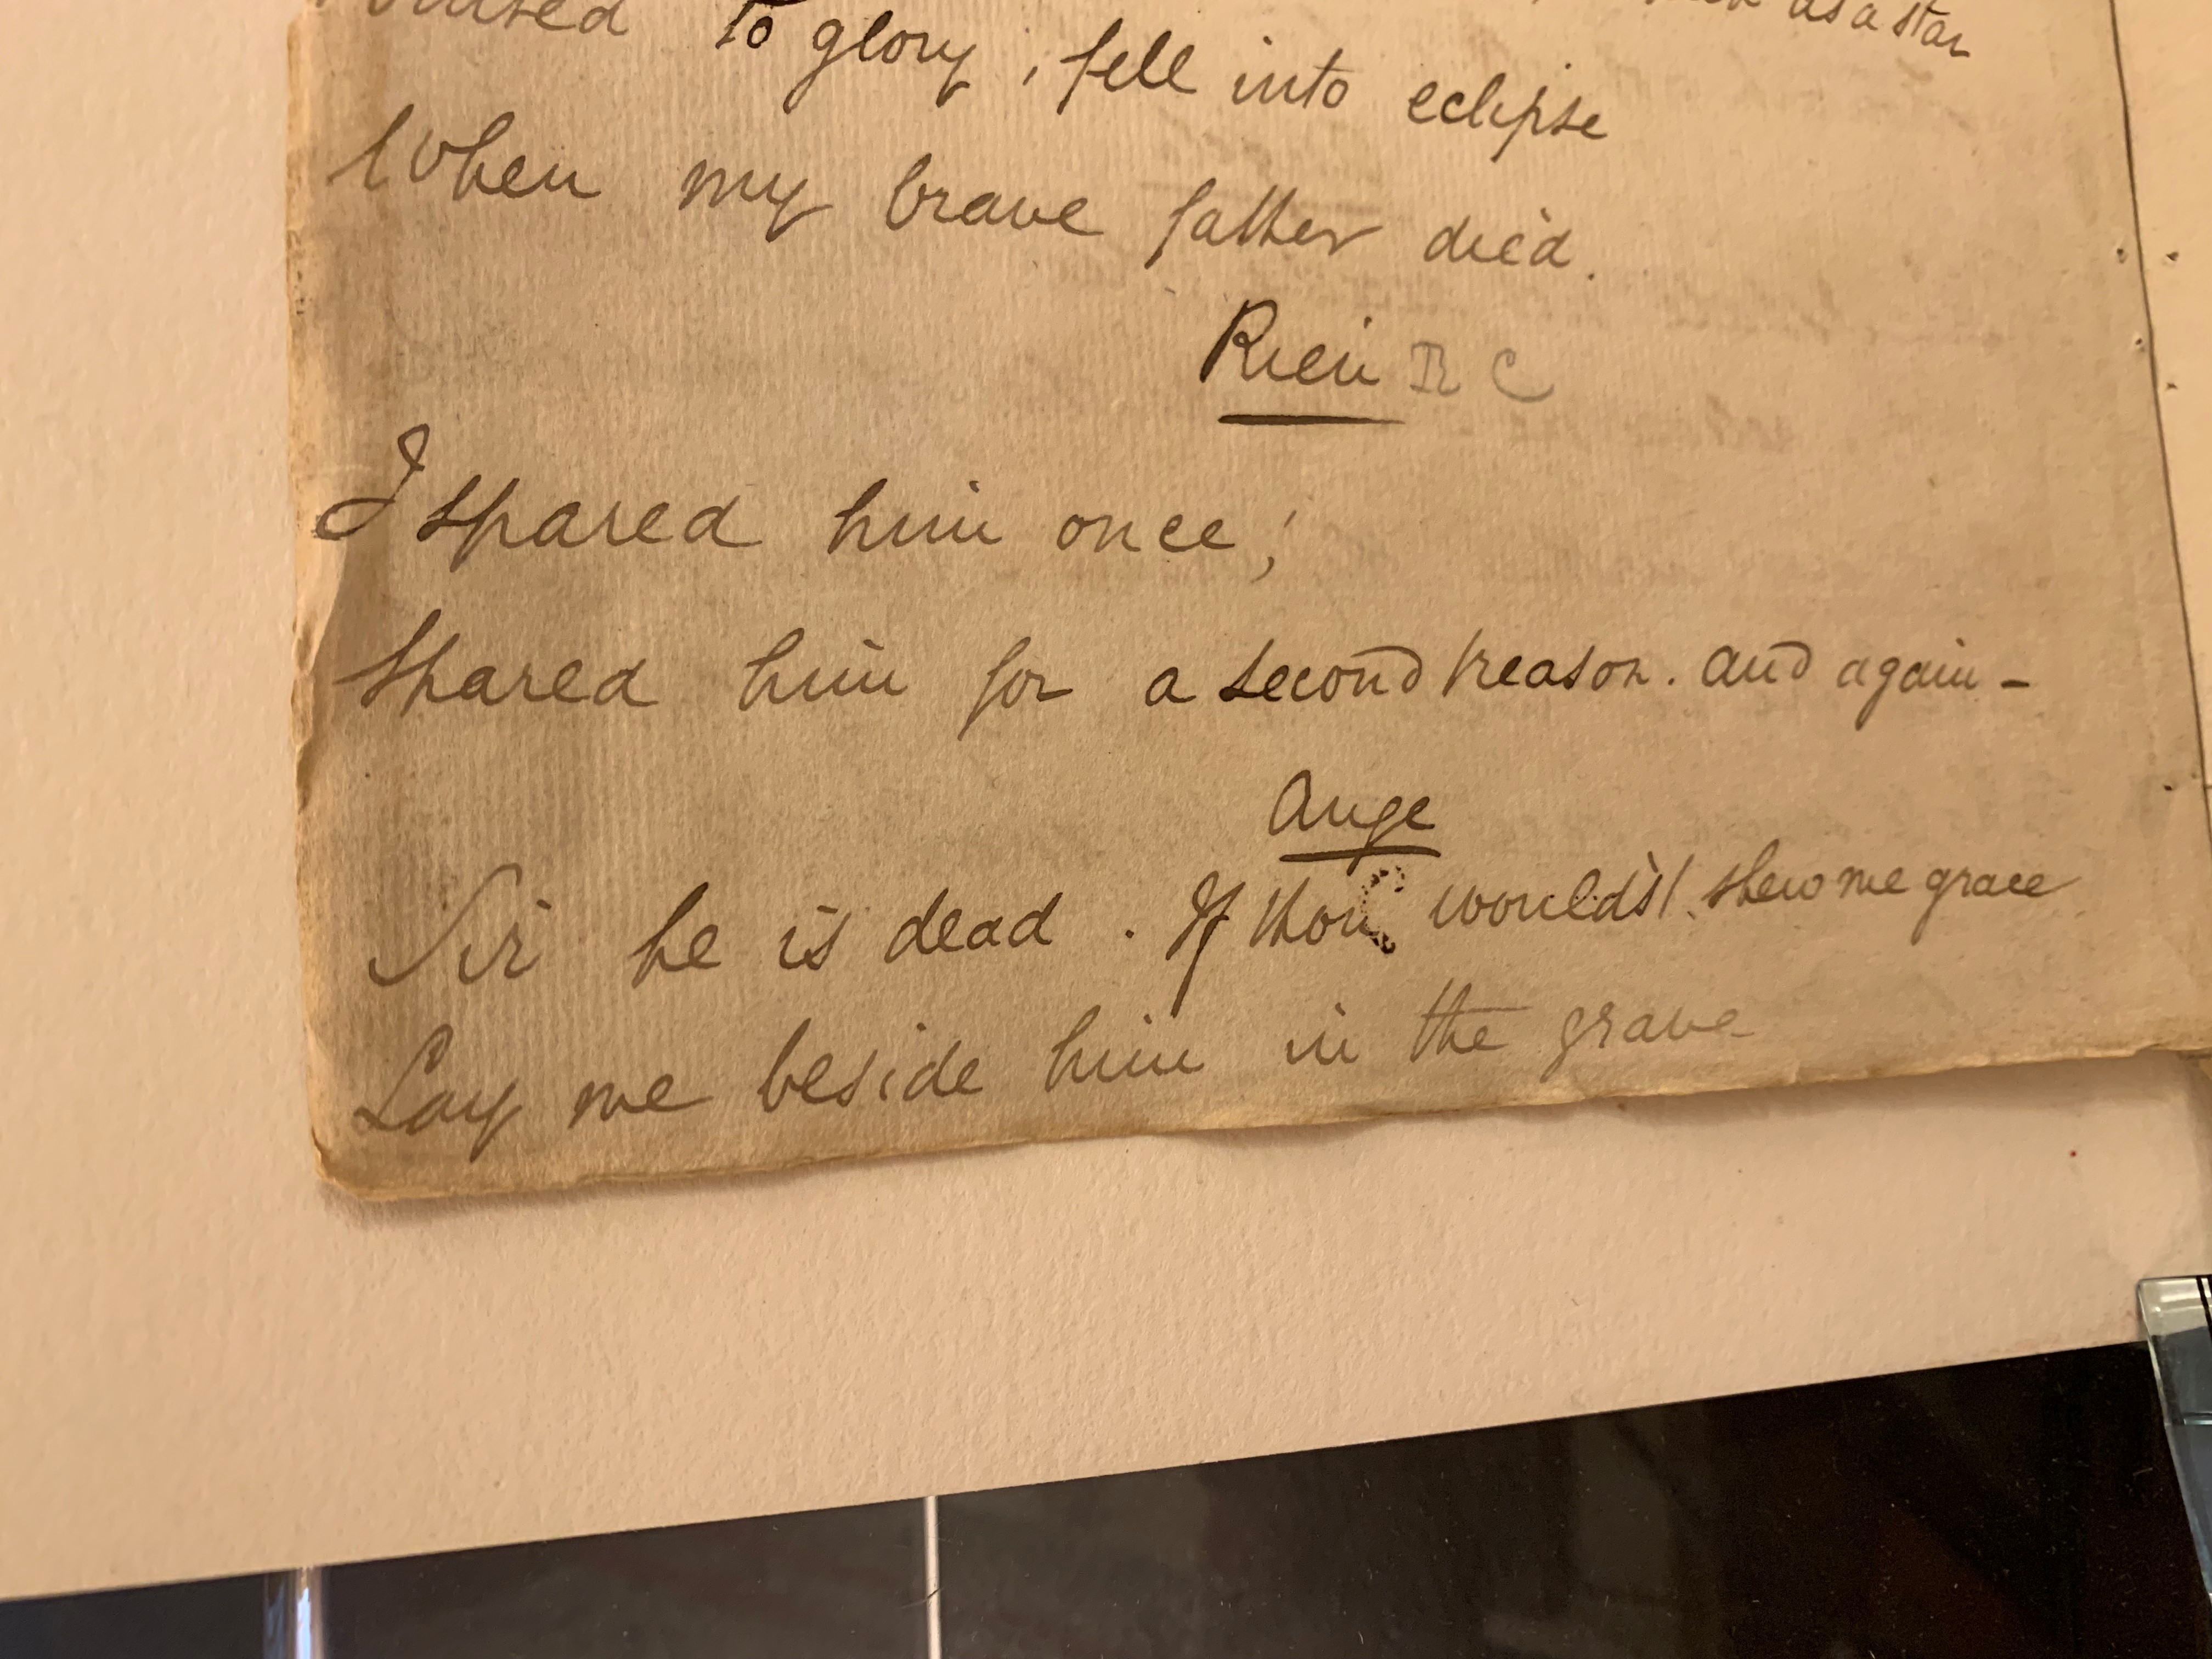 as a star
to glory, fell into eclipse
When my brave father died.
Rien R C
I spared him once;
Spared him for a second treason. and again -
Ange
Sir he is dead. If thou would'st shew me grace
Lay me beside him in the grave